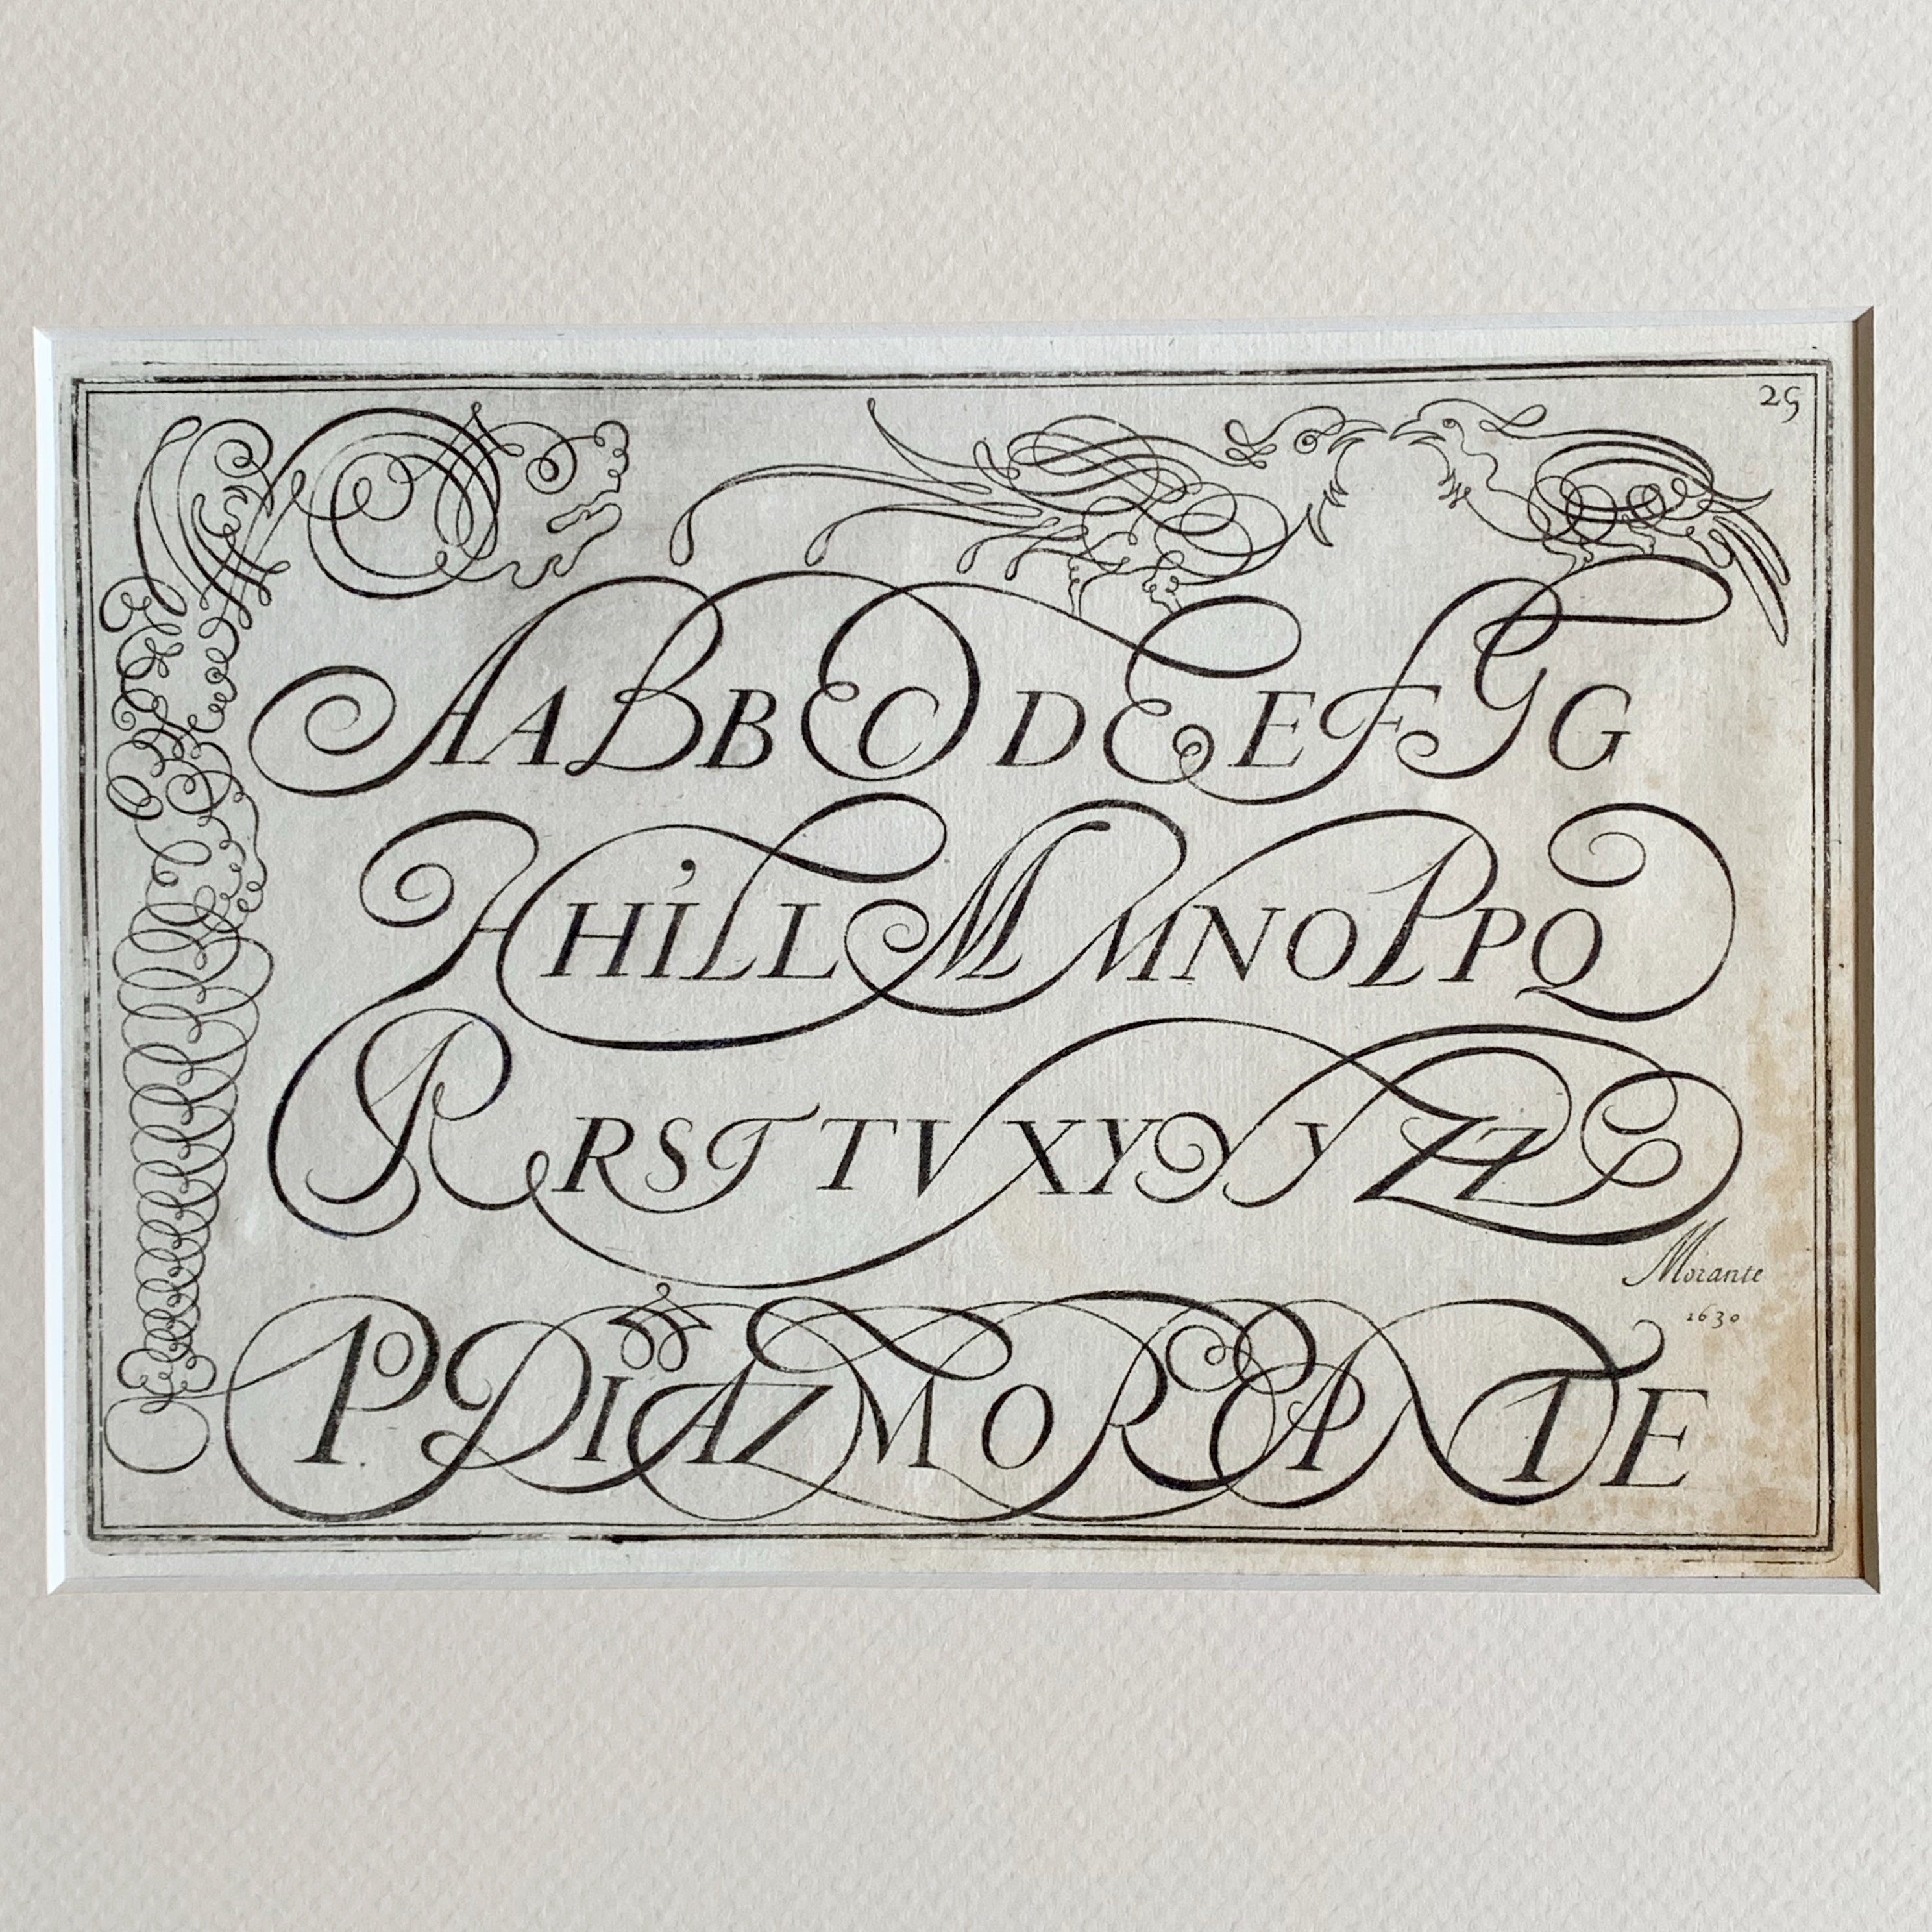 29
AABBCCDDEEFFGG
HHILLMMNOPPQ
RRSTTVXYYYZZ
Morante
1630
P DIAZ MORANTE